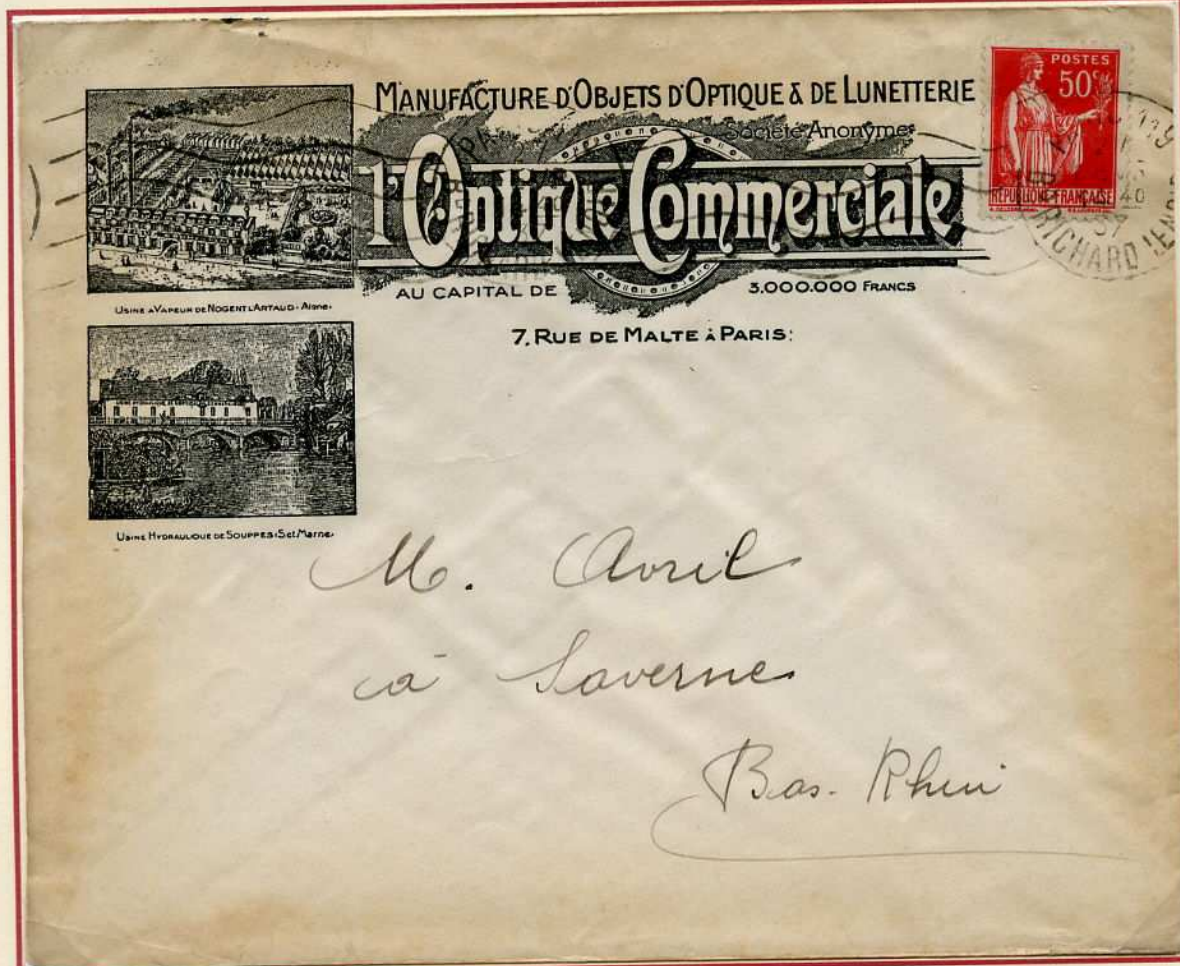 MANUFACTURE D'OBJETS D'OPTIQUE & DE LUNETTERIE
Société Anonyme
l'Optique Commerciale
AU CAPITAL DE 3.000.000 FRANCS
7, RUE DE MALTE À PARIS:
USINE A VAPEUR DE NOGENT L'ARTAUD - Aisne
USINE HYDRAULIQUE DE SOUPPES (S.et Marne)
POSTES
50c
RÉPUBLIQUE FRANÇAISE
RICHARD LENOIR
M. Avril
à Saverne
Bas-Rhin